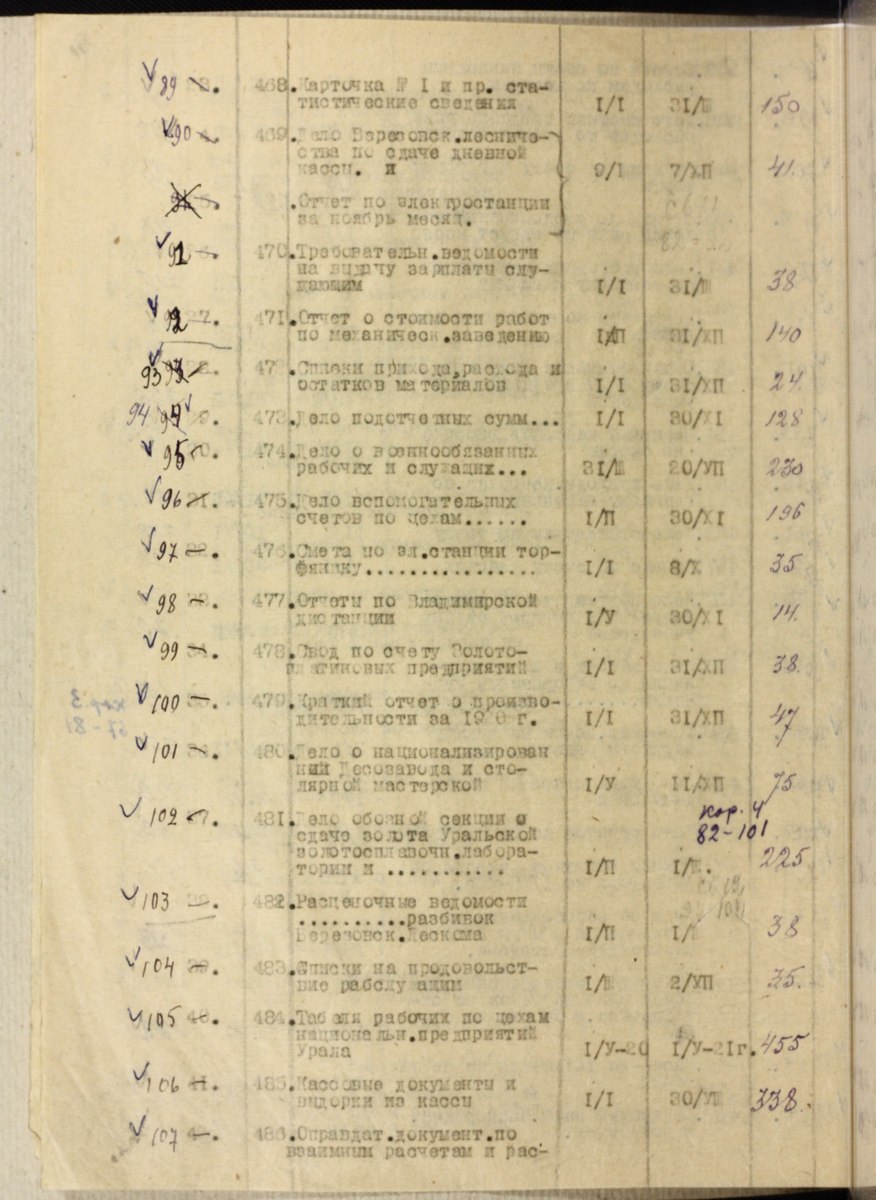 89 468. Карточка № I и пр. ста-
тистические сведения I/I 31/Ш 150
90 469. Дело Березовск.лесниче-
ства по сдаче дневной
кассы. и 9/I 7/ХП 41.
.Отчет по электростанции
за ноябрь месяц.
91 470. Требовательн.ведомости
на выдачу зарплаты слу-
жающим I/I 31/Ш 38
92 471. Отчет о стоимости работ
по механическ.заведению 31/ХП 140
93 47 . Списки прихода,расхода и
остатков материалов I/I 31/ХП 24.
94 473. Дело подотчетных сумм... I/I 30/XI 128
95 474. Дело о военнообязанных
рабочих и служащих... 31/Ш 20/УП 230
96 475. Дело вспомогательных
счетов по цехам...... I/П 30/XI 196
97 476. Смета по эл.станции тор-
фянику................ I/I 8/X 35
98 477. Отчеты по Владимирской
дистанции I/У 30/XI 14.
99 478. Свод по счету Золото-
платиновых предприятий I/I 31/ХП 38.
100 479. Краткий отчет о произво-
дительности за 19 0 г. I/I 31/ХП 47
101 480. Дело о национализирован
ний Лесозавода и сто-
лярной мастерской I/У II/ХП 75
кор. 4
82-101
102 481. Дело обозной секции о
сдаче золота Уральской
золотосплавочн.лабора-
тории и ........... I/П I/Ш. 225
103 482. Расценочные ведомости
..........разбивок
Березовск.Лескома I/П I/ 38
104 483. Списки на продовольст-
вие рабслужащим I/Ш 2/УП 35.
105 484. Табеля рабочих по цехам
национальн.предприятий
Урала I/У-20 I/У-21г. 455
106 485. Кассовые документы и
выдорки из кассы I/I 30/УШ 338.
107 486. Оправдат.документ.по
взаимным расчетам и рас-